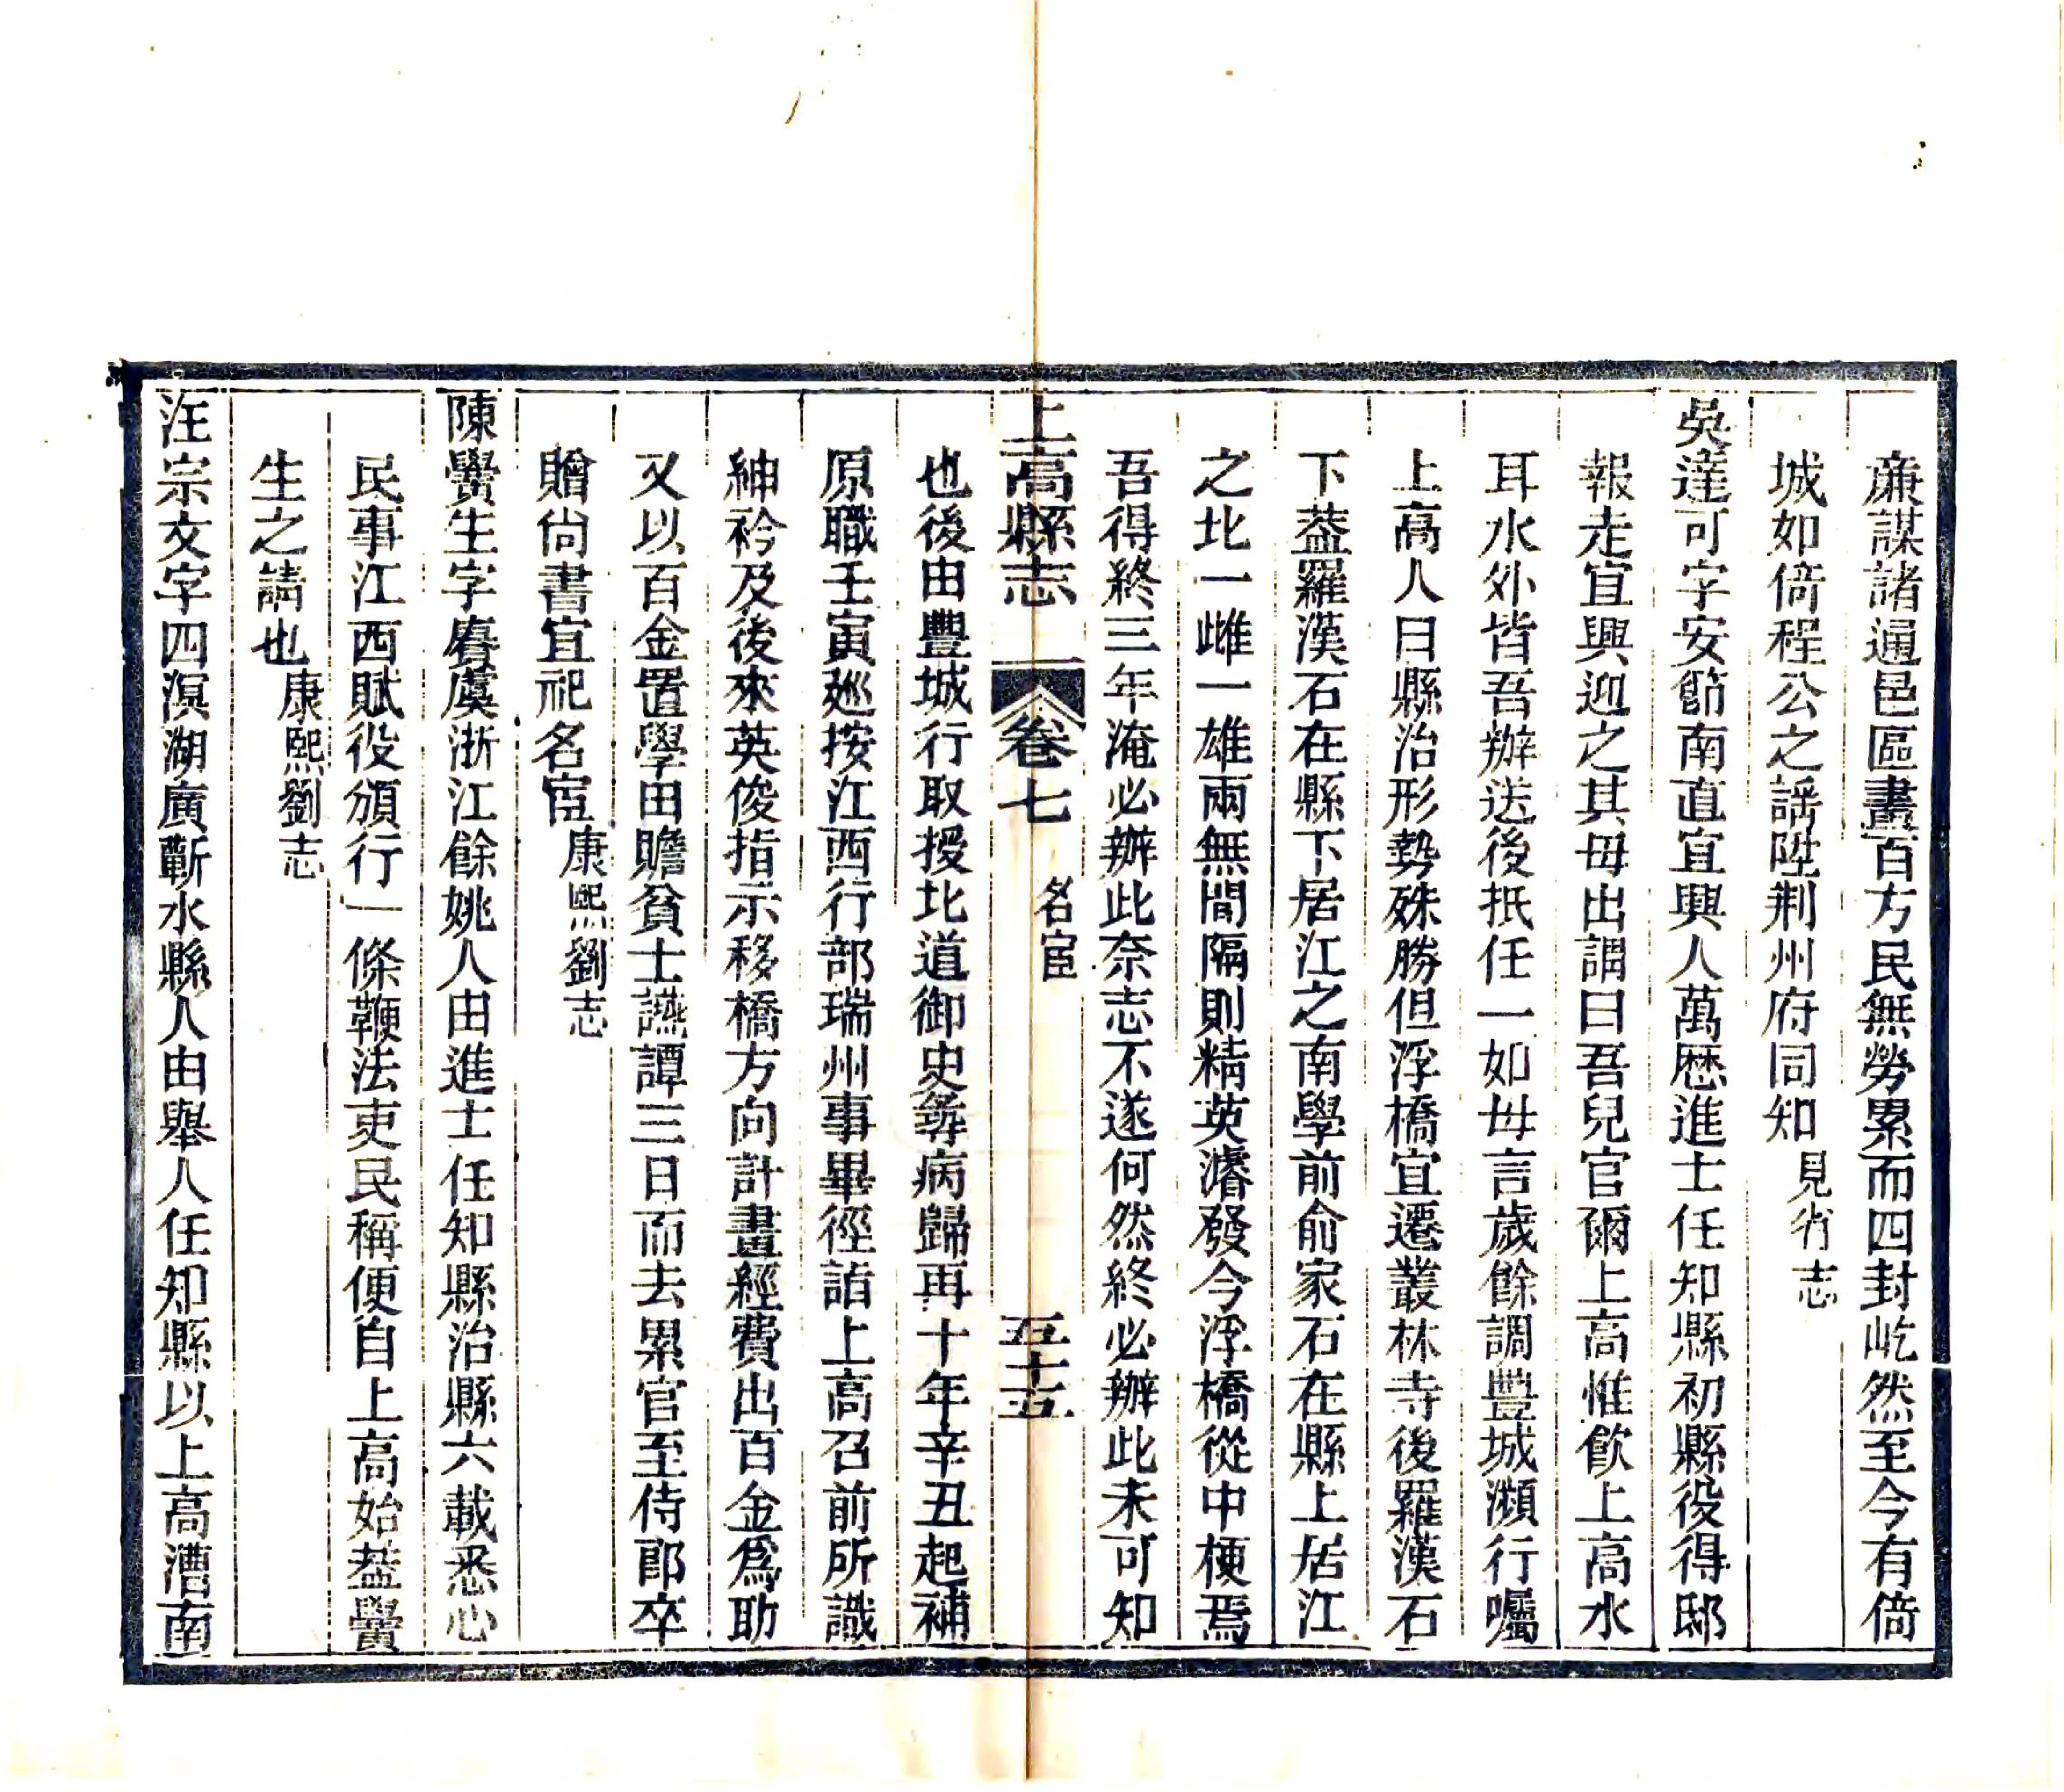 廉謀諸通邑區畫百方民無勞累而四封屹然至今有倚
城如倚程公之謡陞荆州府同知見省志
吳達可字安節南直宜興人萬歷進士任知縣初縣役得邸
報走宜興迎之其毋出謂曰吾兒官爾上高惟飲上高水
耳水外皆吾辦送後抵任一如毋言歲餘調豐城瀕行囑
上高人曰縣治形勢殊勝但浮橋宜遷叢林寺後羅漢石
下葢羅漢石在縣下居江之南學前俞家石在縣上居江
之北一雌一雄兩無間隔則精英濬發今浮橋從中梗焉
吾得終三年淹必辦此奈志不遂何然終必辦此未可知
上高縣志 卷七 名宦 五十五
也後由豐城行取授北道御史移病歸再十年辛丑起補
原職壬寅廵按江西行部瑞州事畢徑詣上高召前所識
紳衿及後來英俊指示移橋方向計畫經費出百金爲助
又以百金置學田贍貧士讌譚三日而去累官至侍郎卒
贈尙書宜祀名宦康熙劉志
陳黌生字 虞浙江餘姚人由進士任知縣治縣六載悉心
民事江西賦役頒行一條鞭法吏民稱便自上高始葢黌
生之請也康熙劉志
汪宗文字四溟湖廣蘄水縣人由舉人任知縣以上高漕南